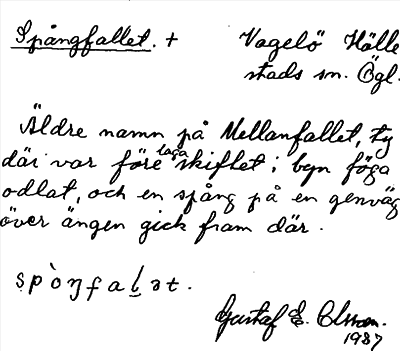 Spångfallet. + Vagelö Hälle
stads sn. Ögl.
Äldre namn på Mellanfallet, ty
där var före laga skiftet i byn föga
odlat, och en spång på en genväg
över ängen gick fram där.
spòŋfaḷət.
Gustaf E. Olsson.
1987